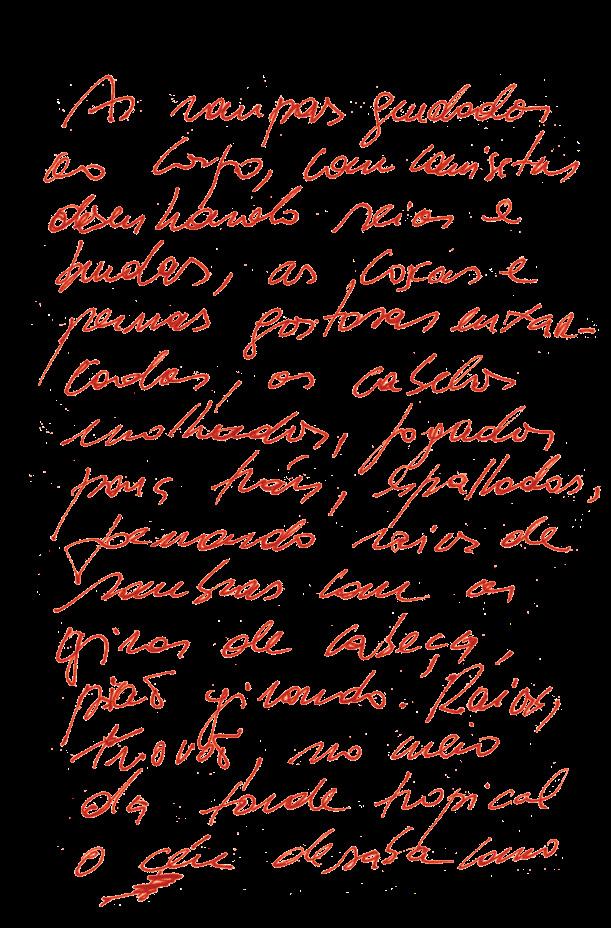 As roupas grudadas
ao corpo, com camisetas
desenhando seios e
bundas, as coxas e
pernas gostosas enxar-
cadas, os cabelos
molhados, jogados
para trás, espalhados,
formando raios de
sombras com os
giros de cabeça,
pião girando. Raios,
trovão, no meio
da tarde tropical
o céu desaba como